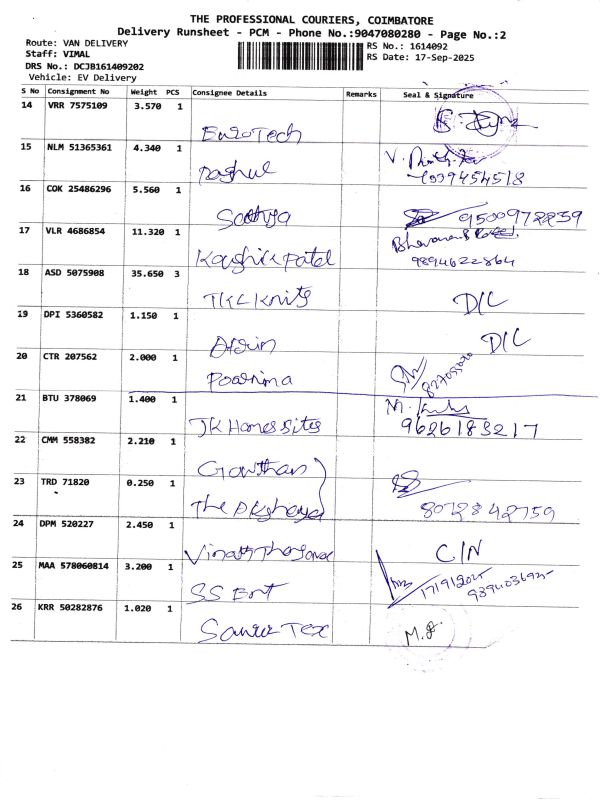 THE PROFESSIONAL COURIERS, COIMBATORE
Delivery Runsheet - PCM - Phone No.:9047080280 - Page No.:2
Route: VAN DELIVERY
Staff: VIMAL
DRS No.: DCJB161409202
Vehicle: EV Delivery
RS No.: 1614092
RS Date: 17-Sep-2025
S No Consignment No Weight PCS Consignee Details Remarks Seal & Signature
14 VRR 7575109 3.570 1
EuroTech
15 NLM 51365361 4.340 1
16 COK 25486296 5.560 1
Sathya 9500972239
17 VLR 4686854 11.320 1
Kaushik patel 9894622864
18 ASD 5075908 35.650 3
TKL Knits D/L
19 DPI 5360582 1.150 1
D/L
20 CTR 207562 2.000 1
Poornima
21 BTU 378069 1.400 1
JK Homes Sites 9626183217
22 CMM 558382 2.210 1
Gowthan
23 TRD 71820 0.250 1
The 8072842759
24 DPM 520227 2.450 1
C/N
25 MAA 578060814 3.200 1
SS Ent
26 KRR 50282876 1.020 1
Tex